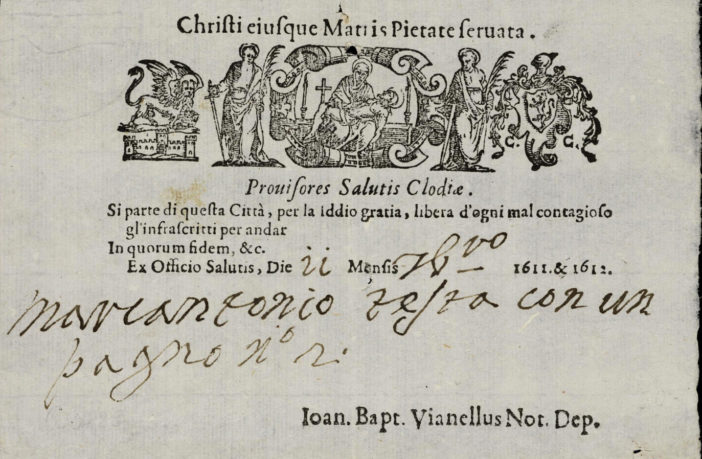 Chriſti eiuſque Matris Pietate ſeruata.
C. C.
Prouiſores Salutis Clodiæ.
Si parte di queſta Città, per la Iddio gratia, libera d'ogni mal contagioſo
gl'infraſcritti per andar
In quorum fidem, &c.
Ex Officio Salutis, Die ii Menſis 1611. & 1612.
Marcantonio testa con un
pagno nº 2.
Ioan. Bapt. Vianellus Not. Dep.